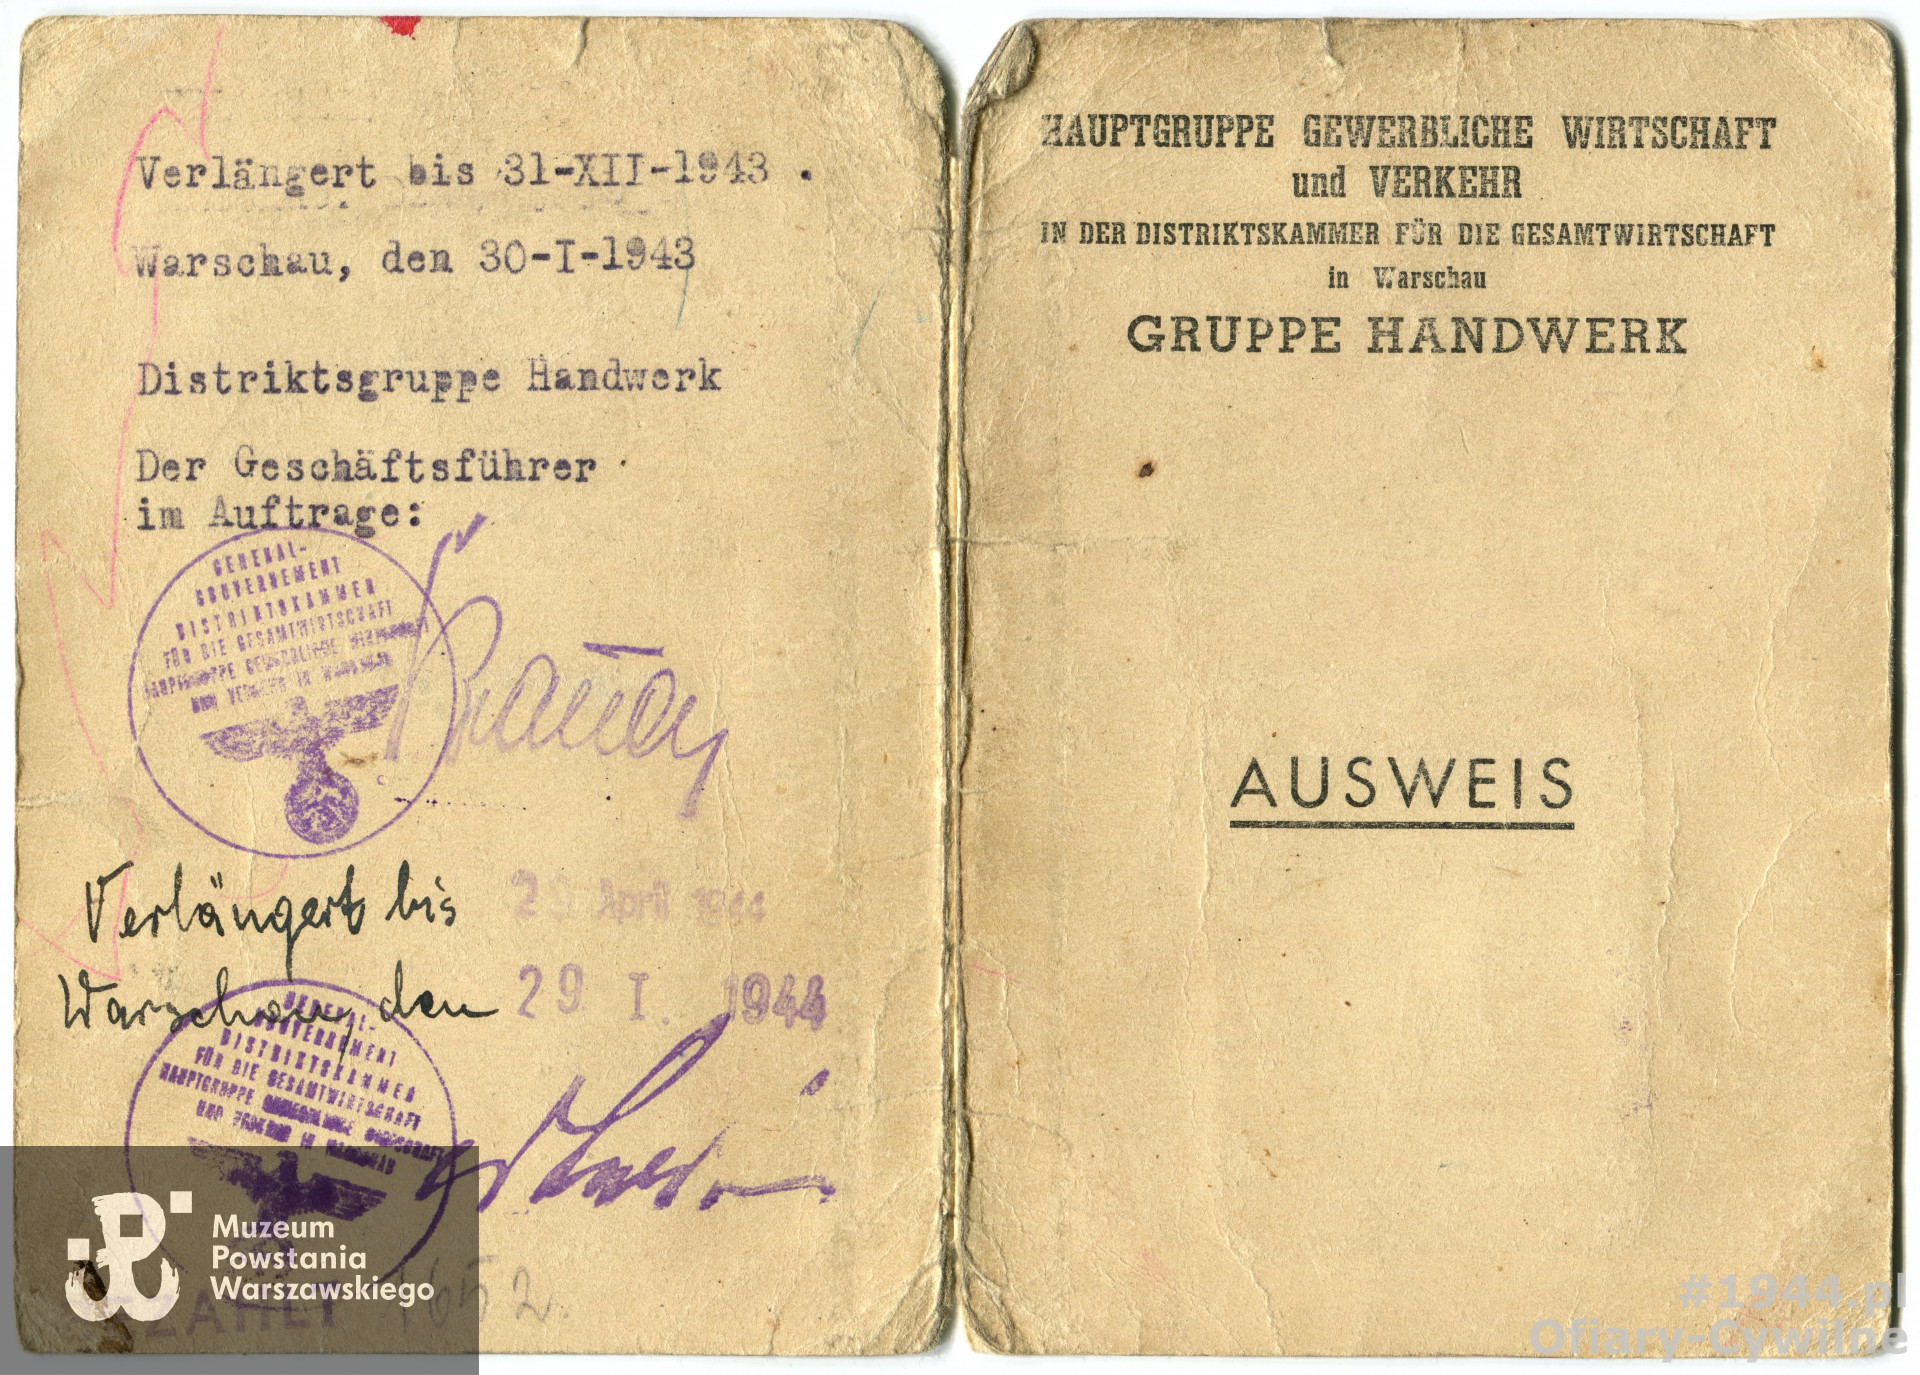 Verlängert bis 31-XII-1943.
Warschau, den 30-I-1943
Distriktsgruppe Handwerk
Der Geschäftsführer
im Auftrage:
GENERAL-
GOUVERNEMENT
DISTRIKTSKAMMER
FÜR DIE GESAMTWIRTSCHAFT
HAUPTGRUPPE GEWERBLICHE WIRTSCHAFT
UND VERKEHR IN WARSCHAU
Verlängert bis 29 April 1944
Warschau, den 29. I. 1944
GENERAL-
GOUVERNEMENT
DISTRIKTSKAMMER
FÜR DIE GESAMTWIRTSCHAFT
HAUPTGRUPPE GEWERBLICHE WIRTSCHAFT
UND VERKEHR IN WARSCHAU
1652.
Muzeum
Powstania
Warszawskiego
HAUPTGRUPPE GEWERBLICHE WIRTSCHAFT
und VERKEHR
IN DER DISTRIKTSKAMMER FÜR DIE GESAMTWIRTSCHAFT
in Warschau
GRUPPE HANDWERK
AUSWEIS
#1944.pl
Ofiary-Cywilne